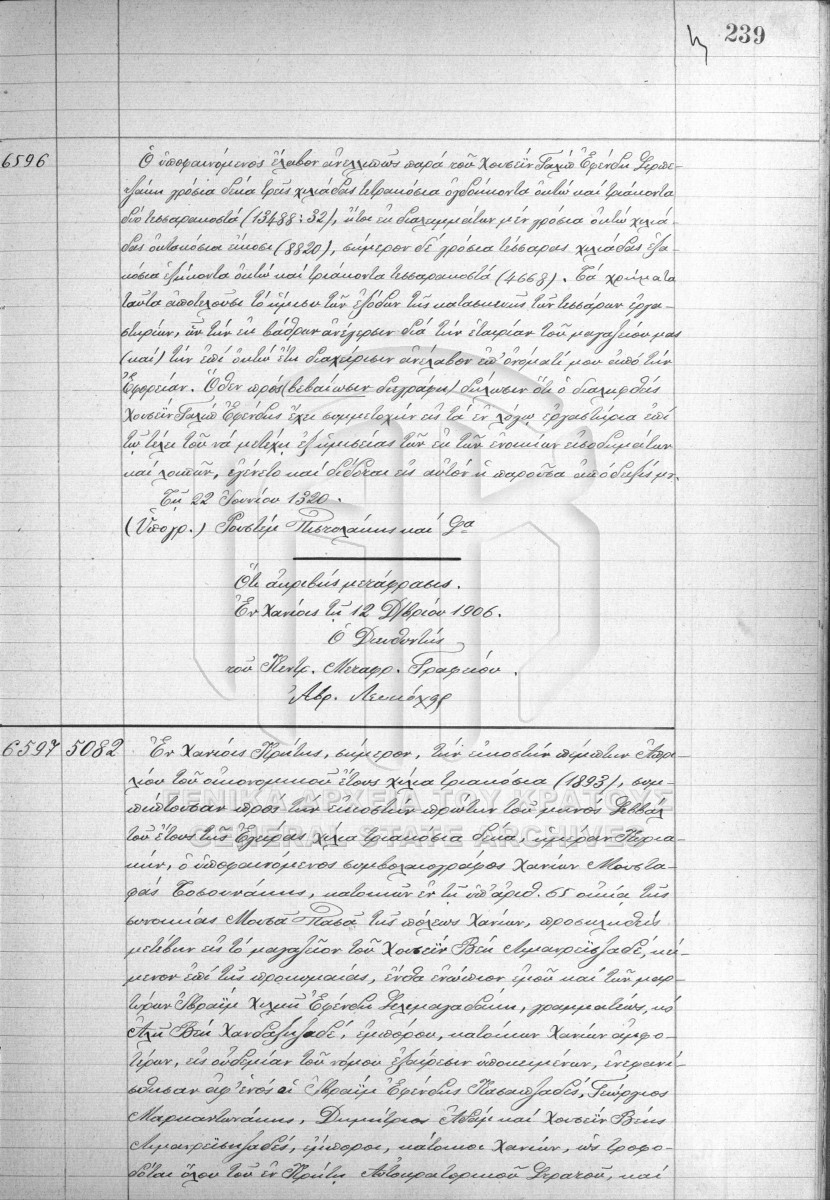 239
6596
Ὁ ὑποφαινόμενος ἔλαβον ἀνελλιπῶς παρὰ τοῦ Χουσεῒν Γαλὶπ Ἐφένδη Σερπε-
ζάκη γρόσια δέκα τρεῖς χιλιάδας τετρακόσια ὀγδοήκοντα ὀκτὼ καὶ τριάκοντα
δύο τεσσαρακοστά (13488:32), ἤτοι ἐκ διαλειμμάτων μὲν γρόσια ὀκτὼ χιλιά-
δας ὀκτακόσια εἴκοσι (8820), σήμερον δὲ γρόσια τέσσαρας χιλιάδας ἑξα-
κόσια ἑξήκοντα ὀκτὼ καὶ τριάκοντα τεσσαρακοστά (4668). Τὰ χρήματα
ταῦτα ἀποτελοῦσι τὸ ἥμισυ τῶν ἐξόδων τῆς κατασκευῆς τῶν τεσσάρων ἐργα-
στηρίων, ὧν τὴν ἐκ βάθρων ἀνέγερσιν διὰ τὴν ἑταιρίαν τοῦ μαγαζείου μας
(καὶ) τὴν ἐπὶ ὀκτὼ ἔτη διαχείρισιν ἀνέλαβον ἐπ' ὀνόματί μου ἀπὸ τὴν
Ἐφορείαν. Ὅθεν πρὸς (βεβαίωσιν διεγράφη) δήλωσιν ὅτι ὁ διαληφθεὶς
Χουσεῒν Γαλὶπ Ἐφένδης ἔχει συμμετοχὴν εἰς τὰ ἐν λόγῳ ἐργαστήρια ἐπὶ
τῷ τέλει τοῦ νὰ μετέχῃ ἐξ ἡμισείας τῶν ἐκ τῶν ἐνοικίων εἰσοδημάτων
καὶ λοιπῶν, ἐγένετο καὶ δίδοται εἰς αὐτὸν ἡ παροῦσα ἀπόδειξίς μου.
Τῇ 22 Ἰουνίου 1320.
(Ὑπογρ.) Ρουστὲμ Πιστολάκης καὶ Σα
Ὅτι ἀκριβὴς μετάφρασις.
Ἐν Χανίοις τῇ 12 Δ/βρίου 1906.
Ὁ Διευθυντὴς
τοῦ Κεντρ. Μεταφρ. Γραφείου.
6597 5082
Ἐν Χανίοις Κρήτης, σήμερον, τὴν εἰκοστὴν πέμπτην Ἀπρι-
λίου τοῦ οἰκονομικοῦ ἔτους χίλια τριακόσια (1893), συμ-
πίπτουσαν πρὸς τὴν εἰκοστὴν πρώτην τοῦ μηνὸς Σεββὰλ
τοῦ ἔτους τῆς Ἐγείρας χίλια τριακόσια δέκα, ἡμέραν Κυρια-
κήν, ὁ ὑποφαινόμενος συμβολαιογράφος Χανίων Μουστα-
φᾶς Τοσουνάκης, κατοικῶν ἐν τῇ ὑπ' ἀριθ. 65 οἰκίᾳ τῆς
συνοικίας Μουσᾶ Πασᾶ τῆς πόλεως Χανίων, προσκληθεὶς
μετέβην εἰς τὸ μαγαζεῖον τοῦ Χουσεῒν Βέη Λιμανρεϊσζαδέ, κεί-
μενον ἐπὶ τῆς προκυμαίας, ἔνθα ἐνώπιον ἐμοῦ καὶ τῶν μαρ-
τύρων Ἰβραῒμ Χιλμῆ Ἐφένδη Σελμαγαδάκη, γραμματέως, κὶ
Ἀλῆ Βέη Χανδαξηζαδέ, ἐμπόρου, κατοίκων Χανίων ἀμφο-
τέρων, εἰς οὐδεμίαν τοῦ νόμου ἐξαίρεσιν ὑποκειμένων, ἐνεφανί-
σθησαν ἀφ' ἑνὸς οἱ Ἰβραῒμ Ἐφένδης Γεώργιος
Μαρκαντωνάκης, Δημήτριος καὶ Χουσεῒν Βέης
Λιμανρεϊσζαδές, ἔμποροι, κάτοικοι Χανίων, ὡς τροφο-
δόται ὅλου τοῦ ἐν Κρήτῃ Αὐτοκρατορικοῦ Στρατοῦ, καὶ
ΓΕΝΙΚΑ ΑΡΧΕΙΑ ΤΟΥ ΚΡΑΤΟΥΣ
GENERAL STATE ARCHIVES